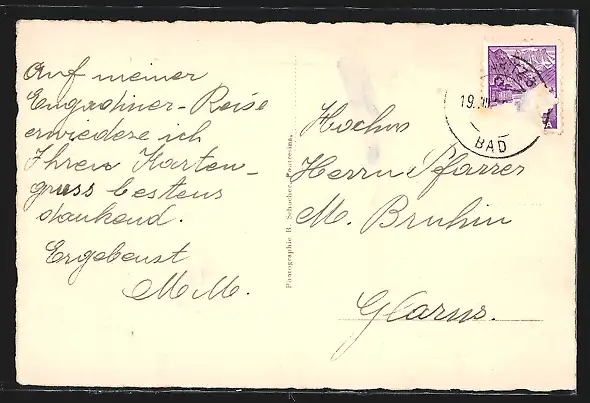 Auf meiner
Engadiner-Reise
erwiedere ich
Ihren Karten-
gruss bestens
dankend.
Ergebenst
M. M.
Photographie B. Schocher, Pontresina.
19.
BAD
Hochw.
Herrn Pfarrer
M. Bruhin
Glarus.